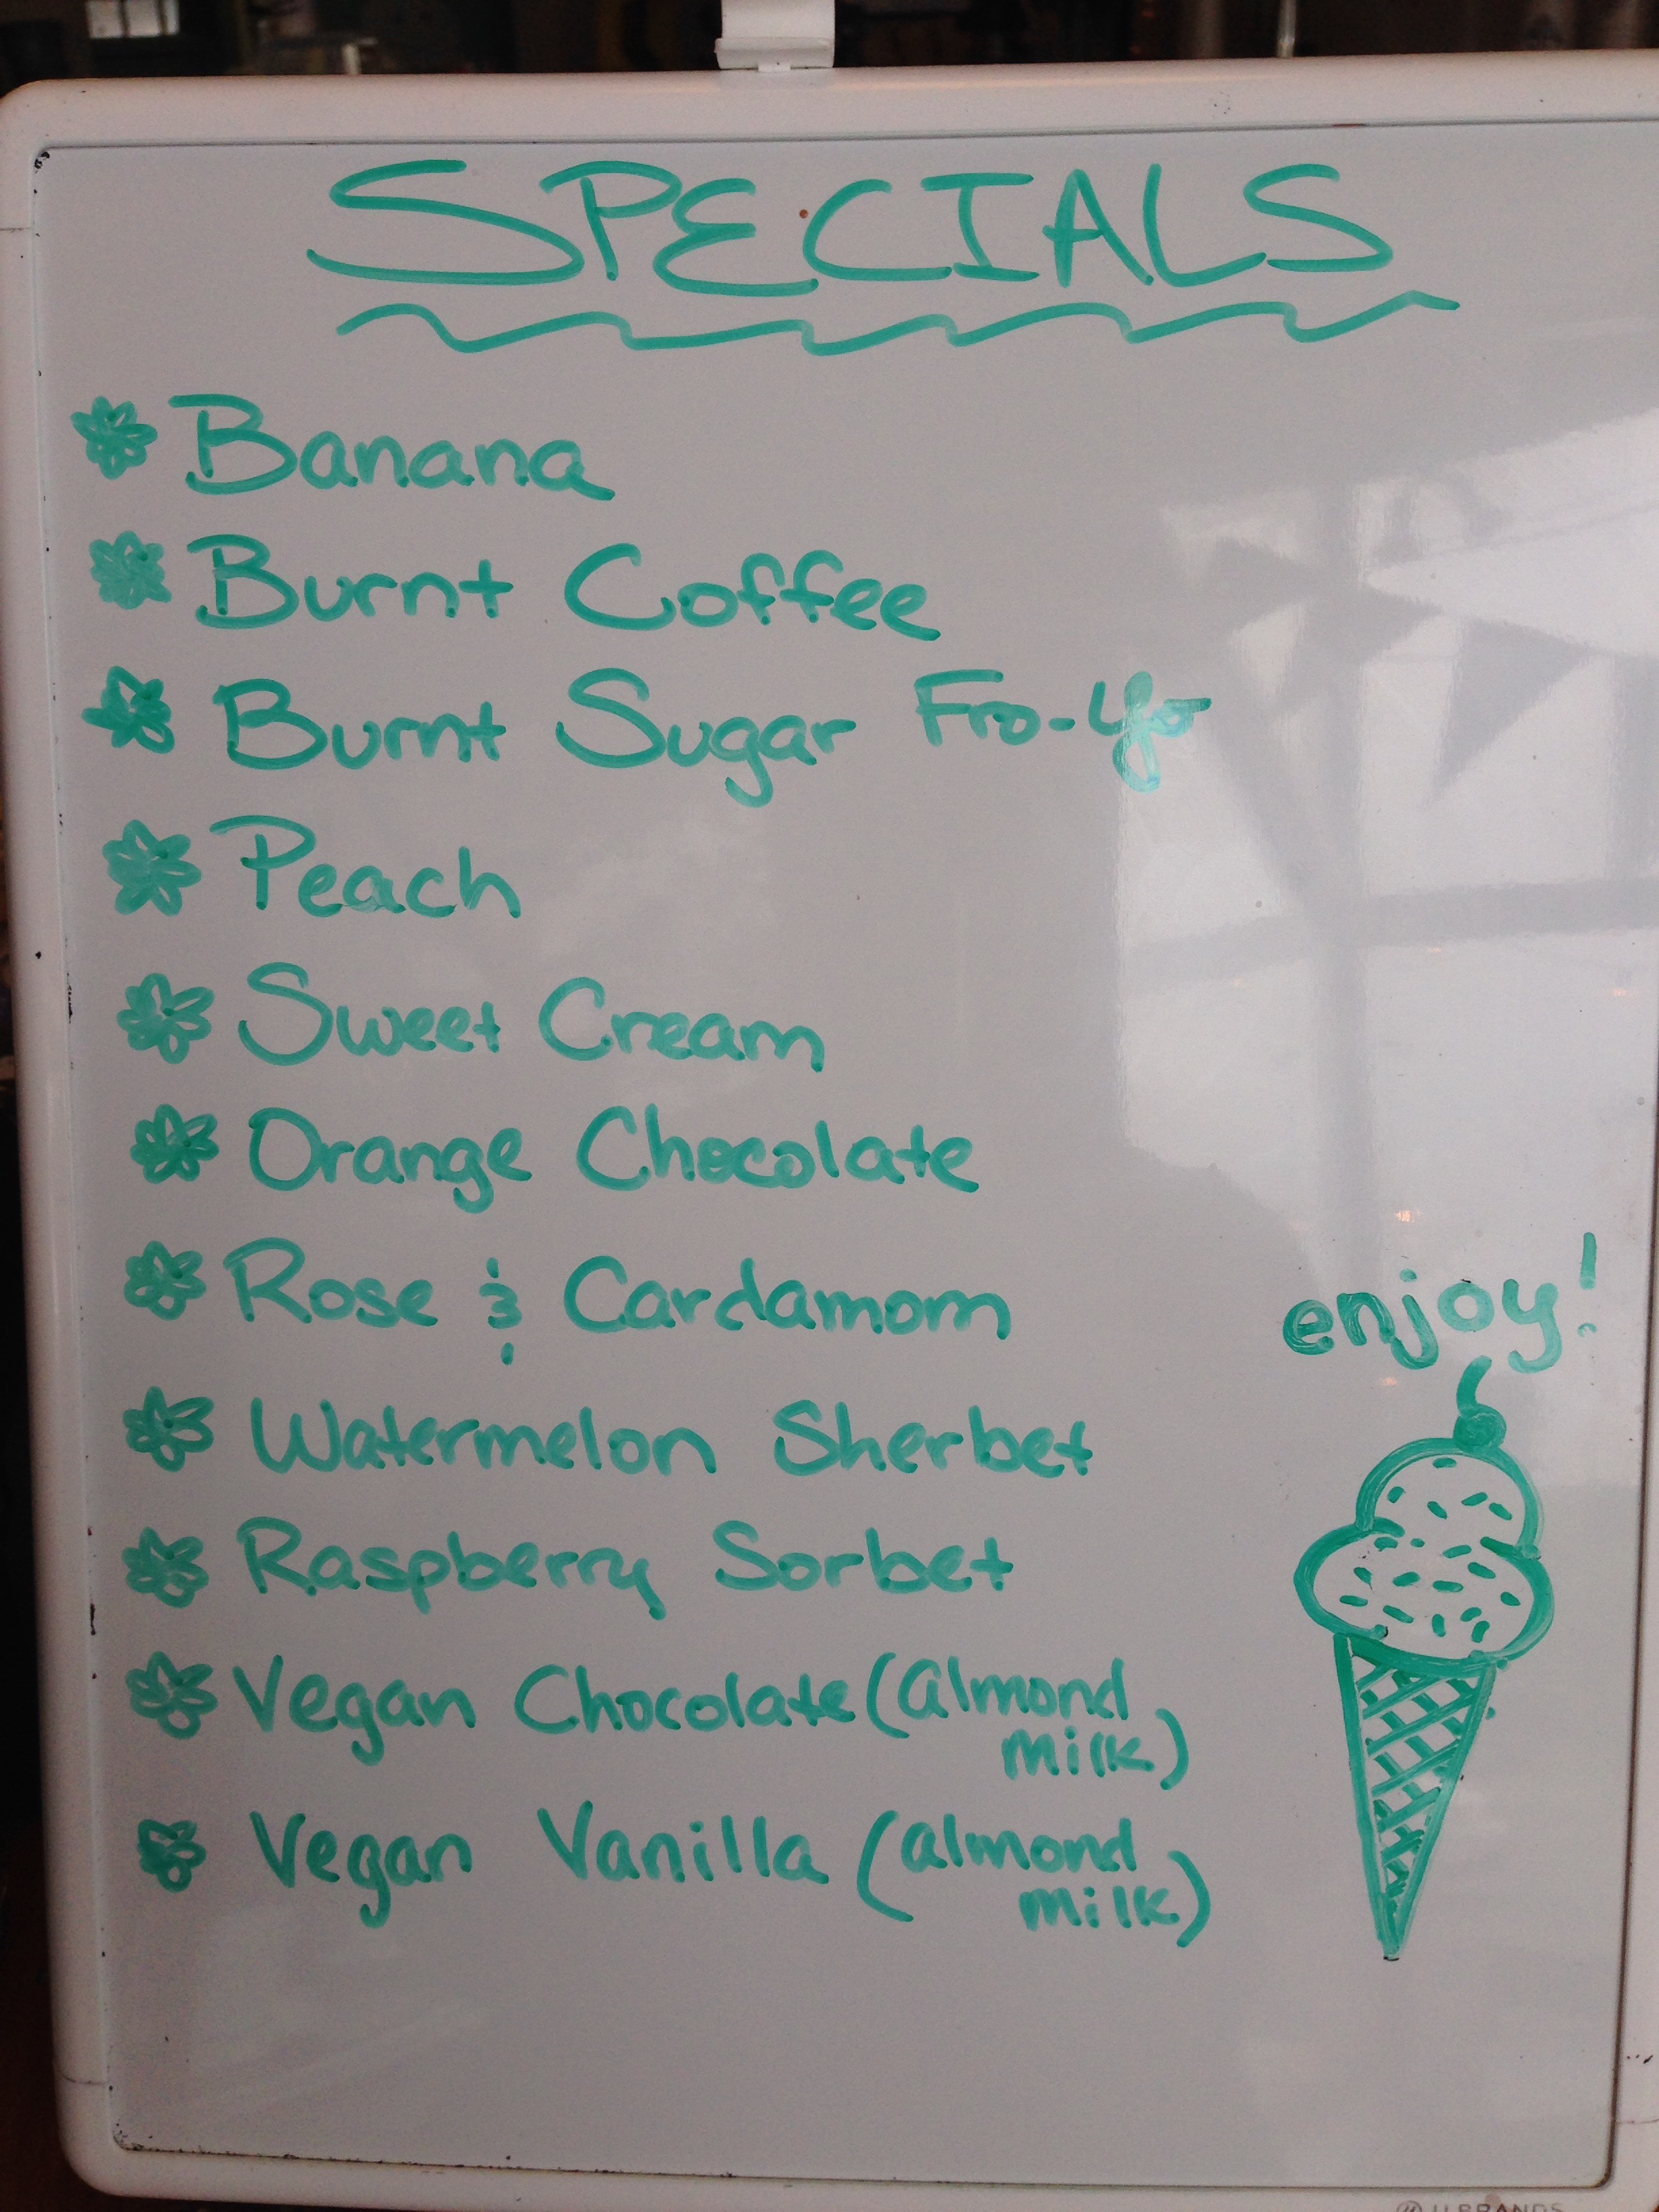 SPECIALS
Banana
Burnt Coffee
Burnt Sugar Fro-Yo
Peach
Sweet Cream
Orange Chocolate
Rose & Cardamom
enjoy!
Watermelon Sherbet
Raspberry Sorbet
Vegan Chocolate (almond
milk)
Vegan Vanilla (almond
milk)
U BRANDS